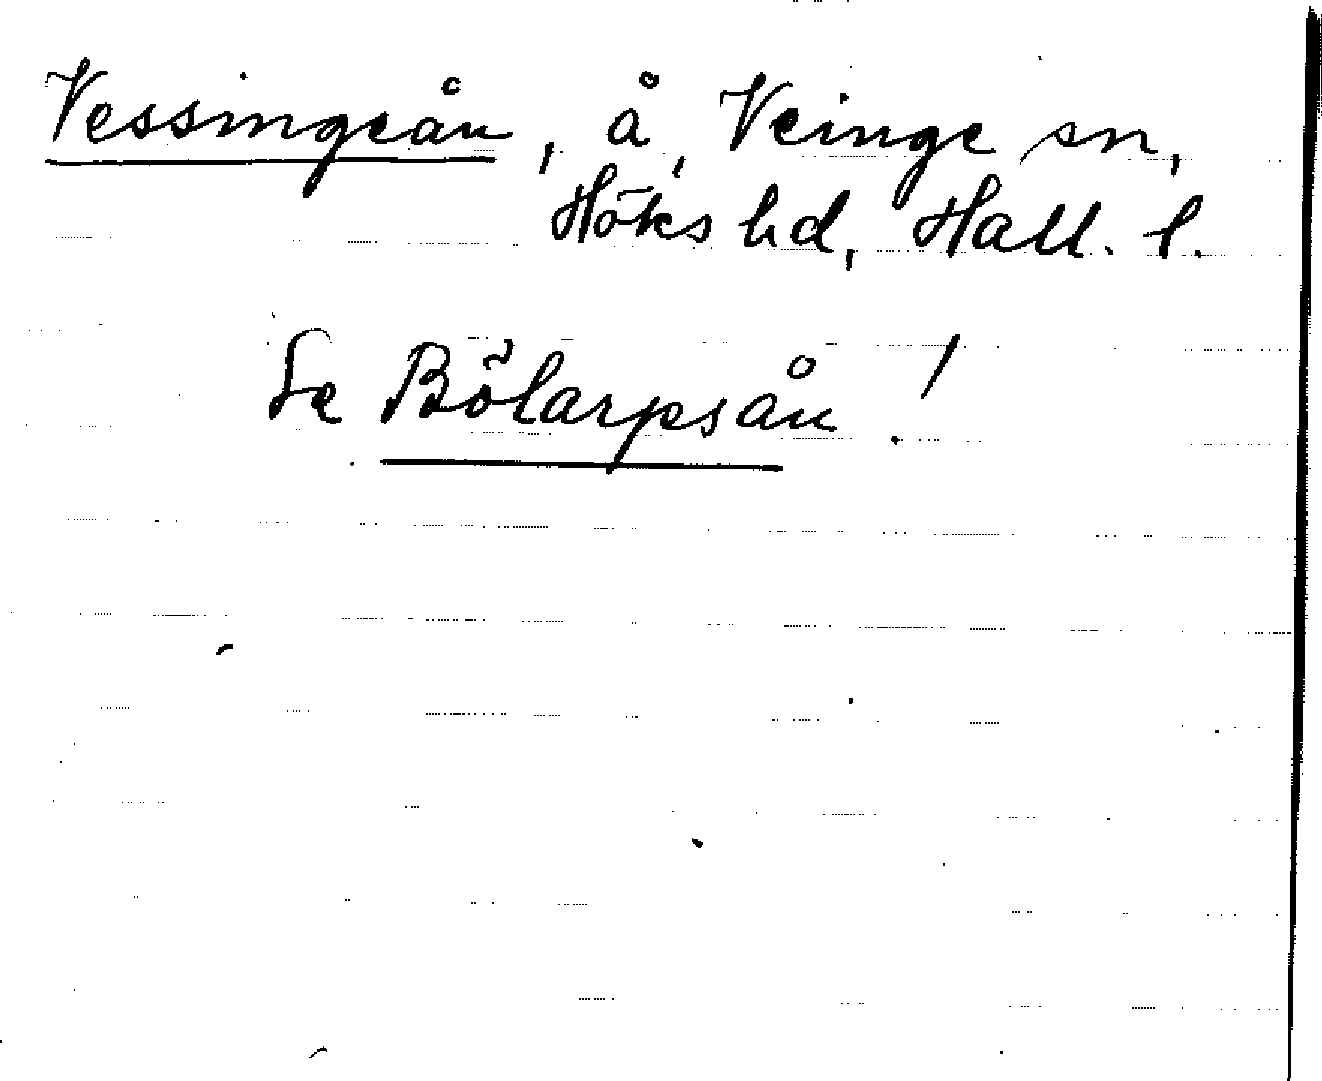 Vessingeån, å, Veinge sn,
Höks hd, Hall. l.
Se Bölarpsån!